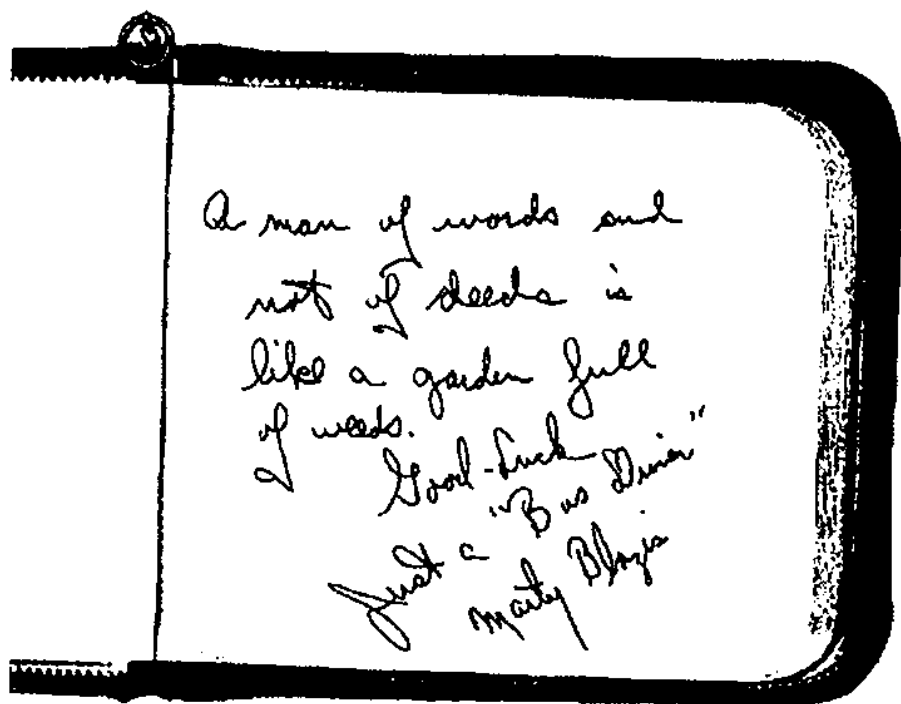 A man of words and
not of deeds is
like a garden full
of weeds.
Good-Luck
Just a "Bus Driver"
Marty